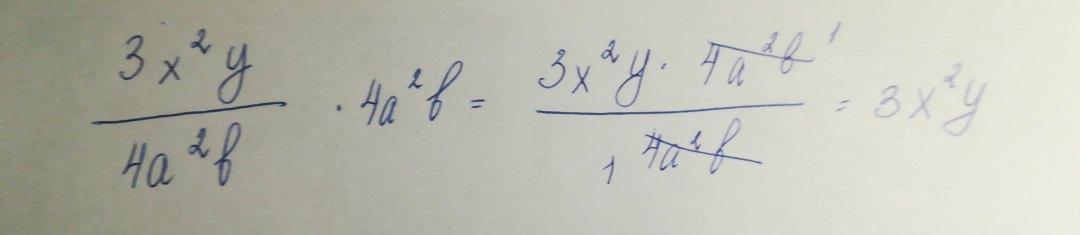 3x²y / 4a²b · 4a²b = 3x²y · 4a²b 1 / 1 4a²b = 3x²y